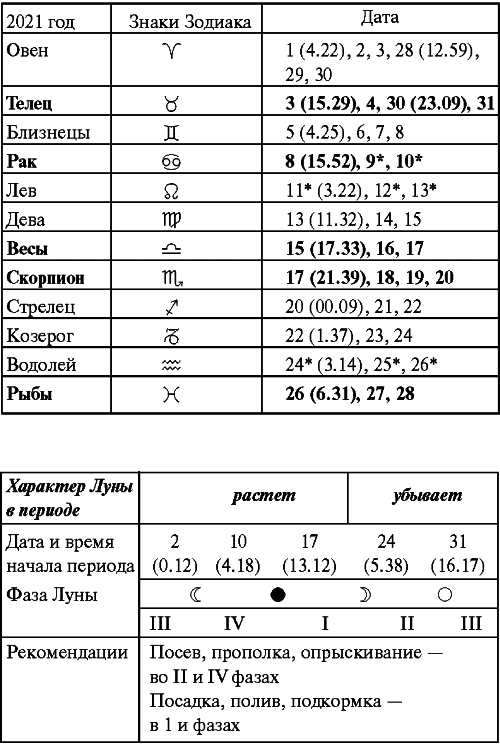 2021 год Знаки Зодиака Дата
Овен ♈ 1 (4.22), 2, 3, 28 (12.59),
29, 30
Телец ♉ 3 (15.29), 4, 30 (23.09), 31
Близнецы ♊ 5 (4.25), 6, 7, 8
Рак ♋ 8 (15.52), 9*, 10*
Лев ♌ 11* (3.22), 12*, 13*
Дева ♍ 13 (11.32), 14, 15
Весы ♎ 15 (17.33), 16, 17
Скорпион ♏ 17 (21.39), 18, 19, 20
Стрелец ♐ 20 (00.09), 21, 22
Козерог ♑ 22 (1.37), 23, 24
Водолей ♒ 24* (3.14), 25*, 26*
Рыбы ♓ 26 (6.31), 27, 28
Характер Луны растет убывает
в периоде
Дата и время 2 10 17 24 31
начала периода (0.12) (4.18) (13.12) (5.38) (16.17)
Фаза Луны ☾ ● ☽ ○
III IV I II III
Рекомендации Посев, прополка, опрыскивание —
во II и IV фазах
Посадка, полив, подкормка —
в 1 и фазах